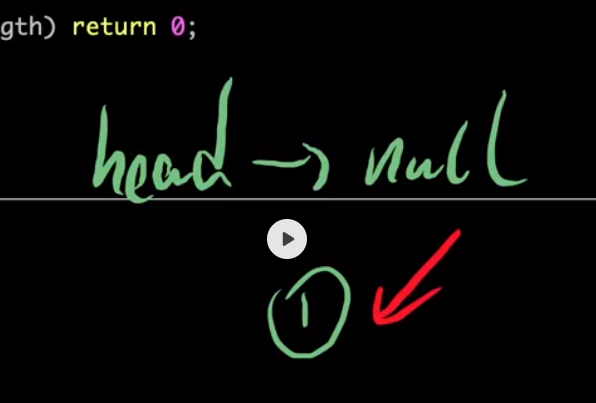 gth) return 0;
head → null
1